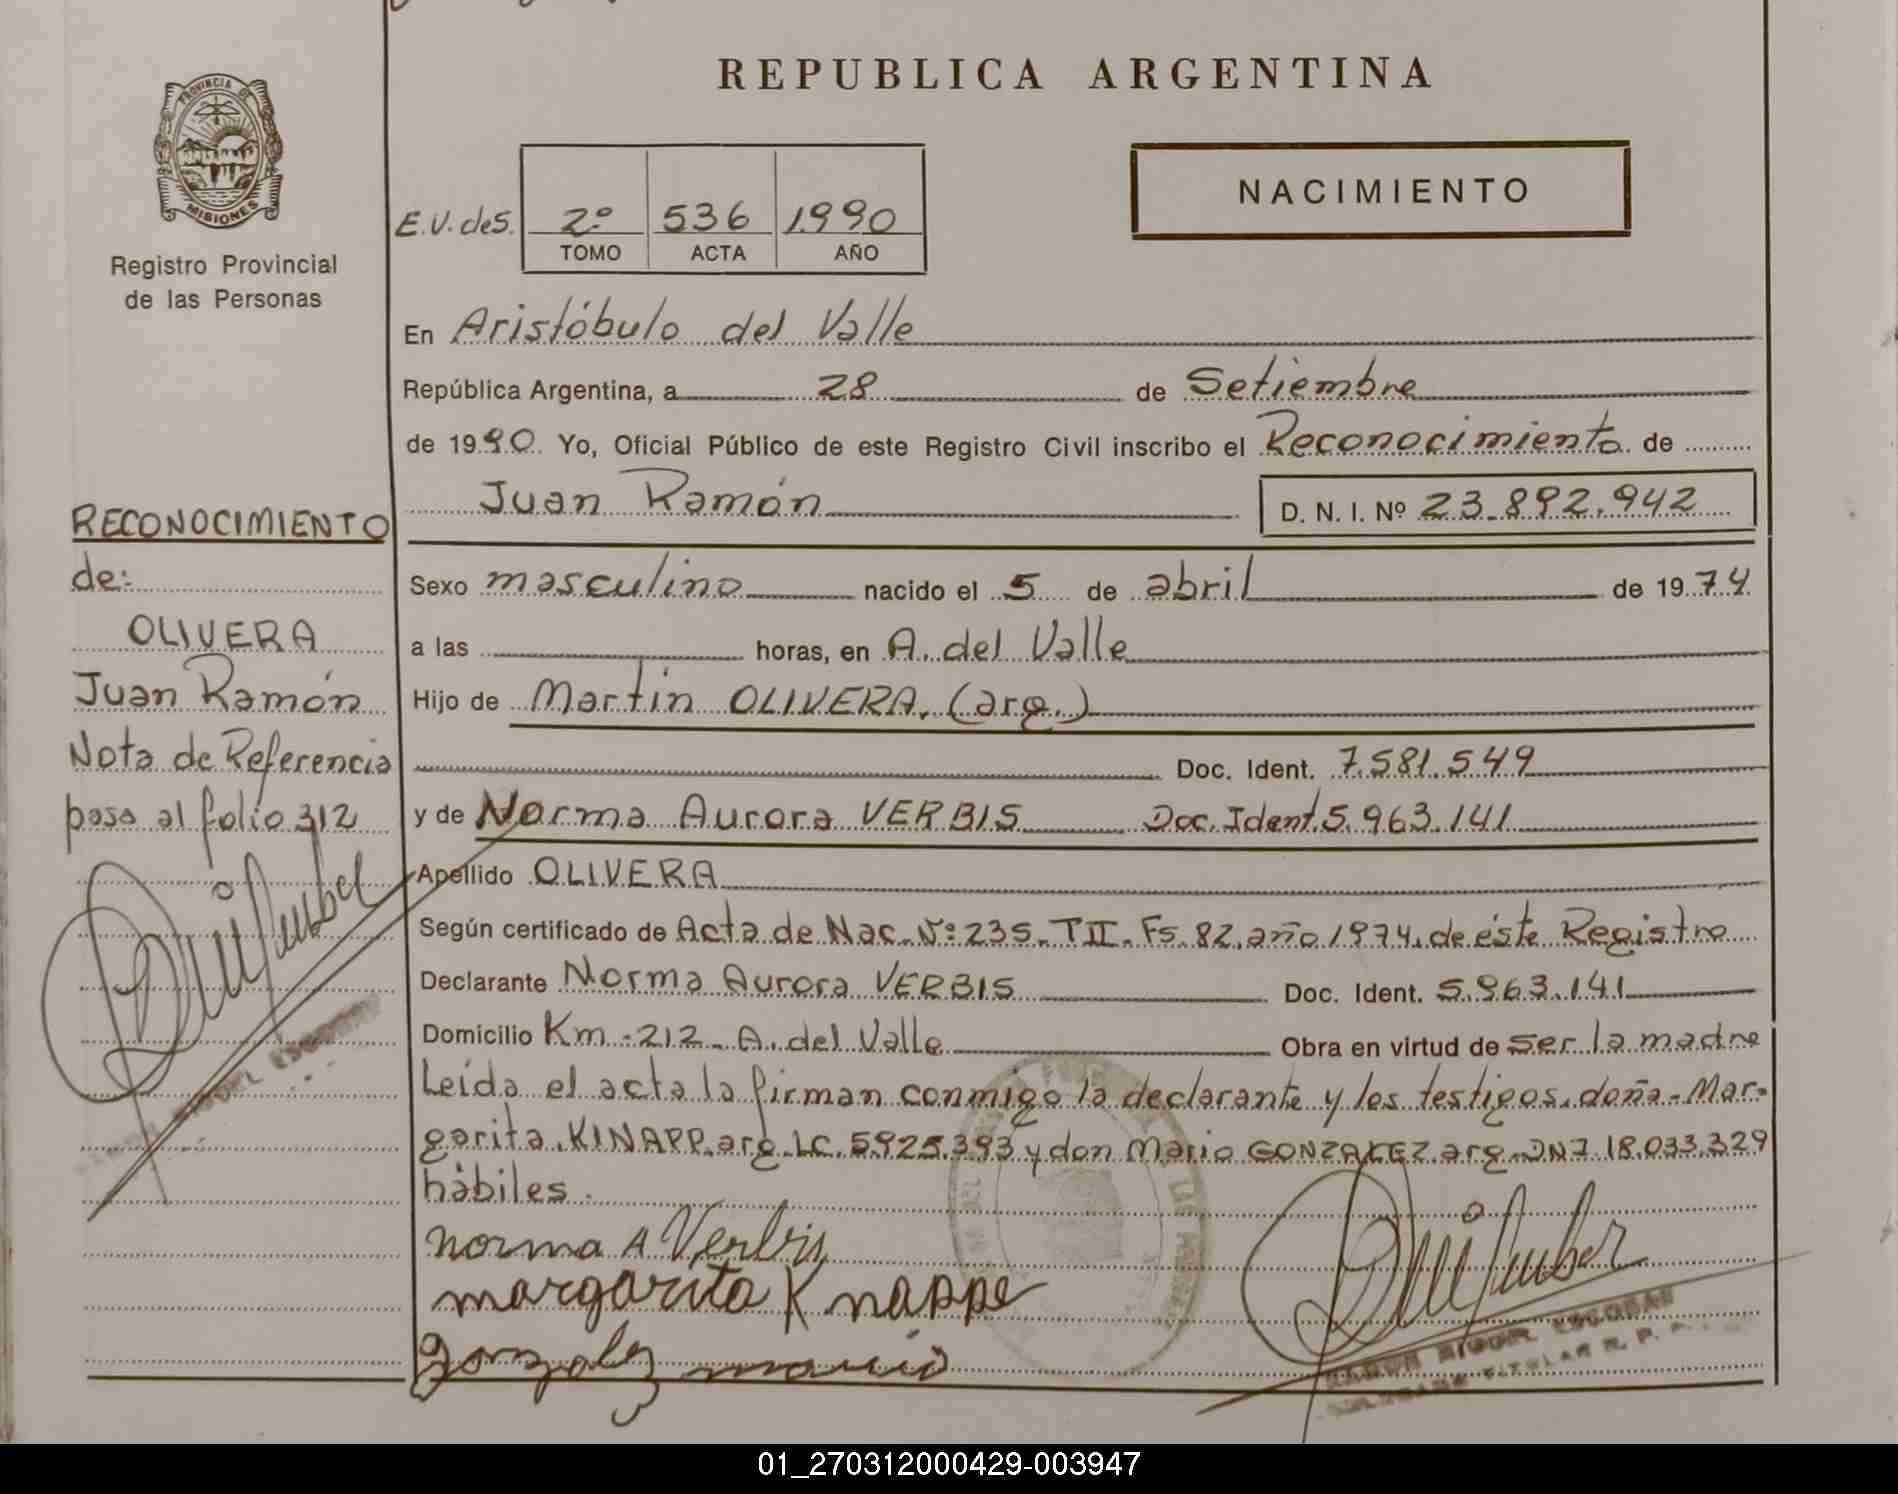 REPUBLICA ARGENTINA
PROVINCIA DE
MISIONES
Registro Provincial
de las Personas
E.V. des. 2º 536 1990
TOMO ACTA AÑO
NACIMIENTO
En Aristóbulo del Valle
República Argentina, a 28 de Setiembre
de 1990 Yo, Oficial Público de este Registro Civil inscribo el Reconocimiento de
Juan Ramón D. N. I. Nº 23.892.942
Sexo masculino nacido el 5 de abril de 1974
a las horas, en A. del Valle
Hijo de Martin OLIVERA, (arg.)
Doc. Ident. 7.581.549
y de Norma Aurora VERBIS Doc. Ident. 5.963.141
Apellido OLIVERA
Según certificado de Acta de Nac. Nº: 235. TII. Fs. 82. año 1974. de éste Registro
Declarante Norma Aurora VERBIS Doc. Ident. 5.963.141
Domicilio Km - 212 - A. del Valle Obra en virtud de ser la madre
Leída el acta la firman conmigo la declarante y los testigos. doña - Mar-
garita KINAPP. arg. LC. 5925.393 y don Mario GONZALEZ. arg. DNI 18.033.329
hábiles.
Norma A Verbis
margarita Knappe
gonzalez mario
MIGUEL ESCOBAR
TITULAR R. P.
RECONOCIMIENTO
de:
OLIVERA
Juan Ramón
Nota de Referencia
pasa al folio 312
01_270312000429-003947